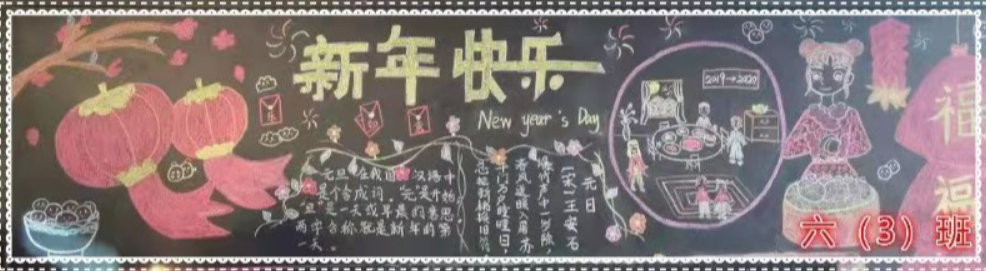 新年快乐
New year's Day
2019→2020
元旦
[宋]王安石
爆竹声中一岁除
春风送暖入屠苏
千门万户曈曈日
总把新桃换旧符
元旦,在我国汉语中
是个合成词。"元"是开始
"旦"是一天或早晨的意思
两字合称就是新年的第
一天。
福
福
六(3)班